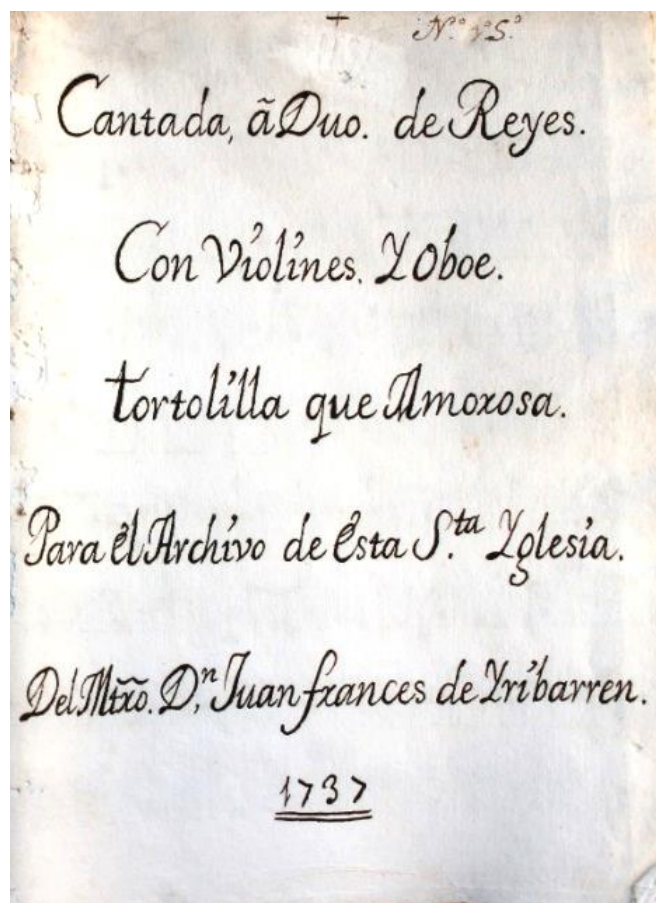 Nº
Cantada, ã Duo. de Reyes.
Con Violines. Y Oboe.
tortolilla que Amorosa.
Para el Archivo de esta S.ta Yglesia.
Del Mtrõ. D.n Juan frances de Yribarren.
1737